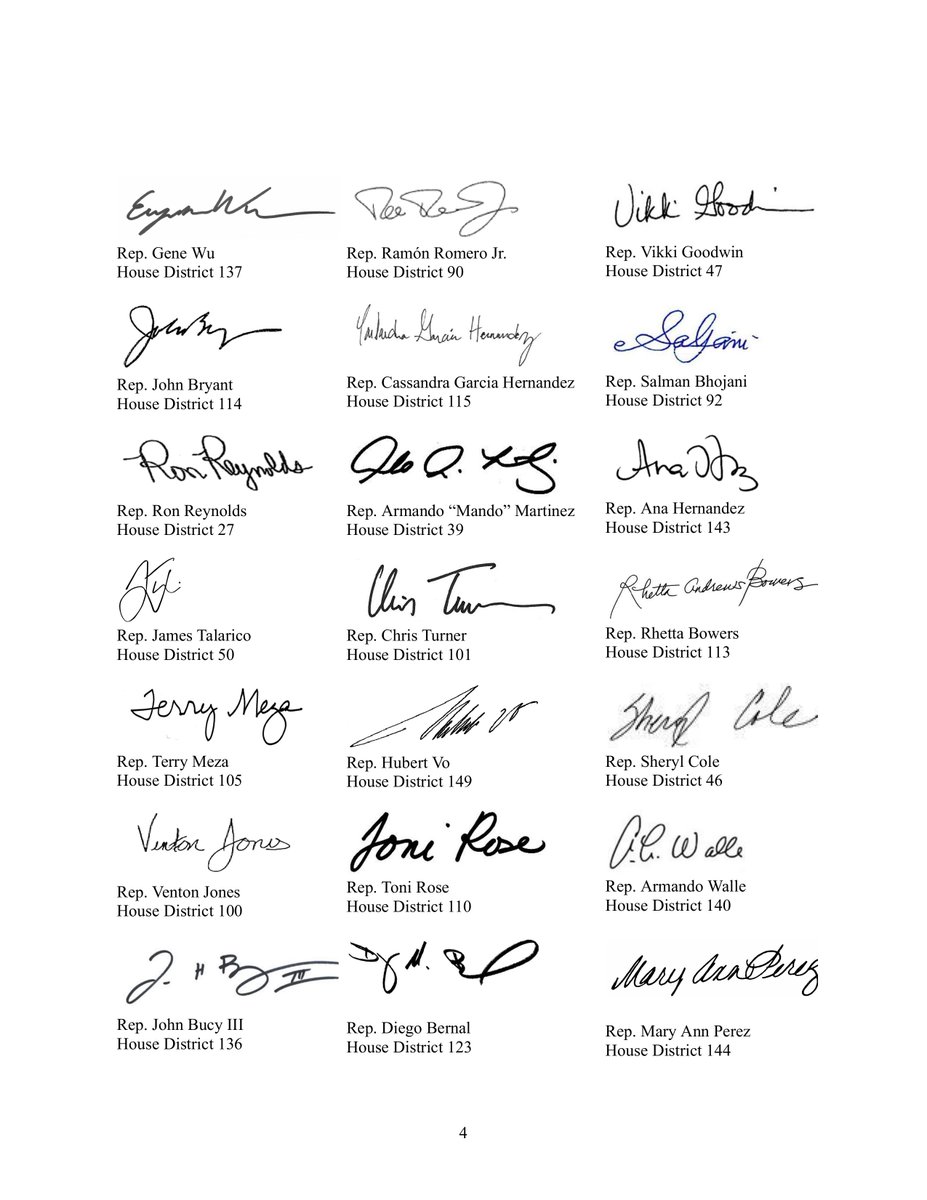 Vikki
Rep. Gene Wu
House District 137
Rep. Ramón Romero Jr.
House District 90
Rep. Vikki Goodwin
House District 47
Hernandez
Rep. John Bryant
House District 114
Rep. Cassandra Garcia Hernandez
House District 115
Rep. Salman Bhojani
House District 92
Ron Reynolds
Ana
Rep. Ron Reynolds
House District 27
Rep. Armando “Mando” Martinez
House District 39
Rep. Ana Hernandez
House District 143
Chris
Rhetta Andrews Bowers
Rep. James Talarico
House District 50
Rep. Chris Turner
House District 101
Rep. Rhetta Bowers
House District 113
Terry Meza
Sheryl Cole
Rep. Terry Meza
House District 105
Rep. Hubert Vo
House District 149
Rep. Sheryl Cole
House District 46
Venton Jones
Toni Rose
Walle
Rep. Venton Jones
House District 100
Rep. Toni Rose
House District 110
Rep. Armando Walle
House District 140
Mary Ann Perez
Rep. John Bucy III
House District 136
Rep. Diego Bernal
House District 123
Rep. Mary Ann Perez
House District 144
4